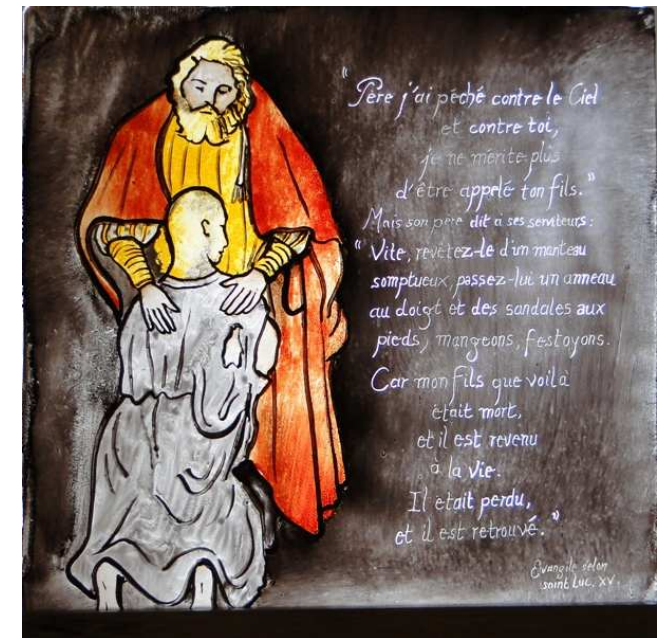 "Père j'ai péché contre le Ciel
et contre toi,
je ne mérite plus
d'être appelé ton fils."
Mais son père dit a ses serviteurs:
"Vite, revêtez-le d'un manteau
somptueux, passez-lui un anneau
au doigt et des sandales aux
pieds, mangeons, festoyons.
Car mon fils que voilà
était mort,
et il est revenu
à la vie.
Il était perdu,
et il est retrouvé."
Evangile selon
saint Luc. XV.